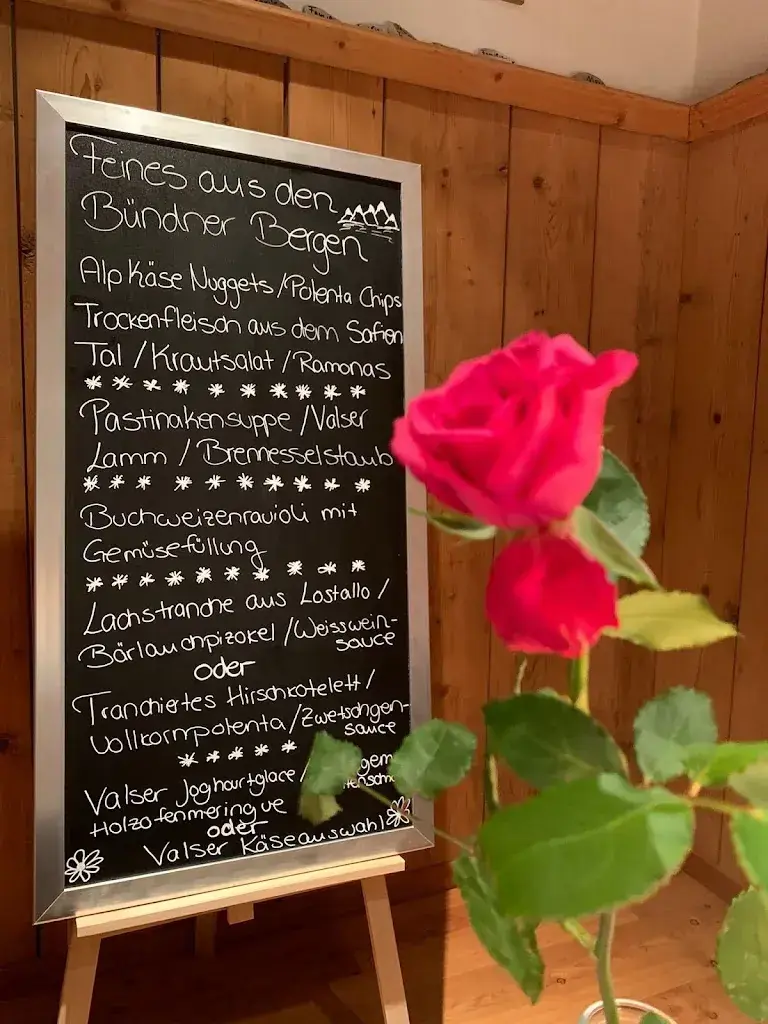 Feines aus den
Bündner Bergen
Alp Käse Nuggets / Polenta Chips
Trockenfleisch aus dem Safien
Tal / Krautsalat / Ramonas
Pastinakensuppe / Valser
Lamm / Bremesselstaub
Buchweizenravioli mit
Gemüsefüllung
Lachstranche aus Lostallo /
Bärlauchpizokel / Weisswein-
sauce
oder
Tranchiertes Hirschkotelett /
Vollkornpolenta / Zwetschgen-
sauce
Valser Joghourtglace /
Holzofenmeringue
oder
Valser Käseauswahl